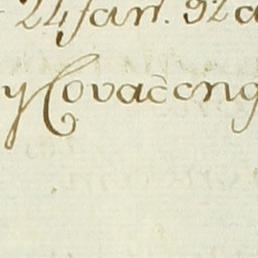 24 Jan. 92 a
y Covacong